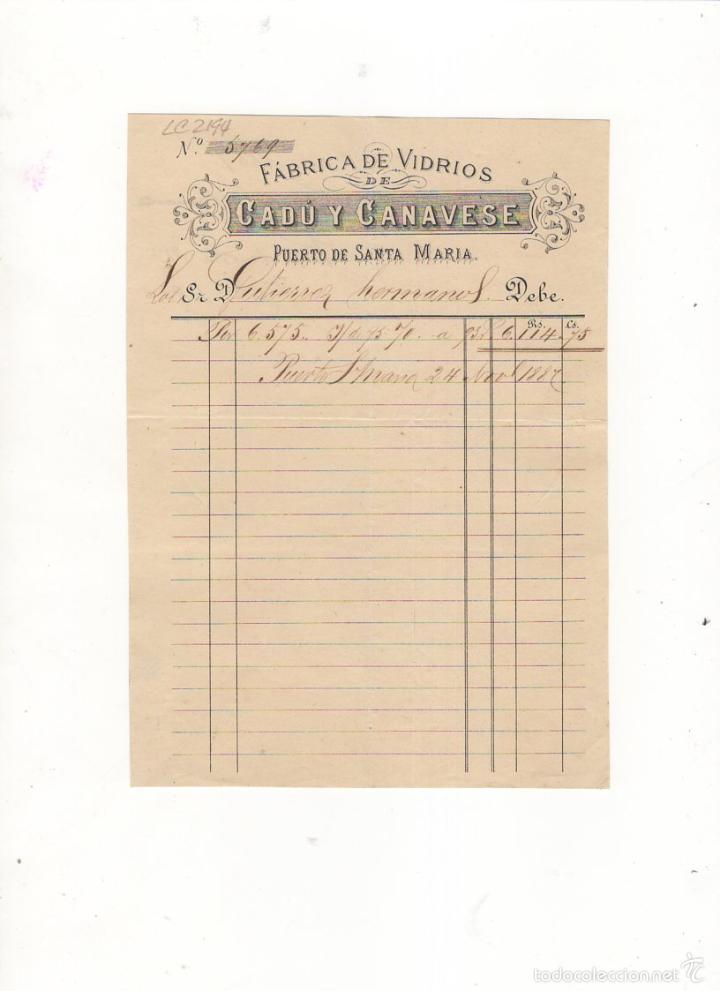 LC2194
Nº 5769
FÁBRICA DE VIDRIOS
DE
CADÚ Y CANAVESE
PUERTO DE SANTA MARIA.
Los Sr. D. Gutierrez hermanos. Debe.
Rs. Cs.
Por 6.575 75 % a 93 6.114 75
Puerto Sta Maria 24 Novbre 1887
todocoleccion.net